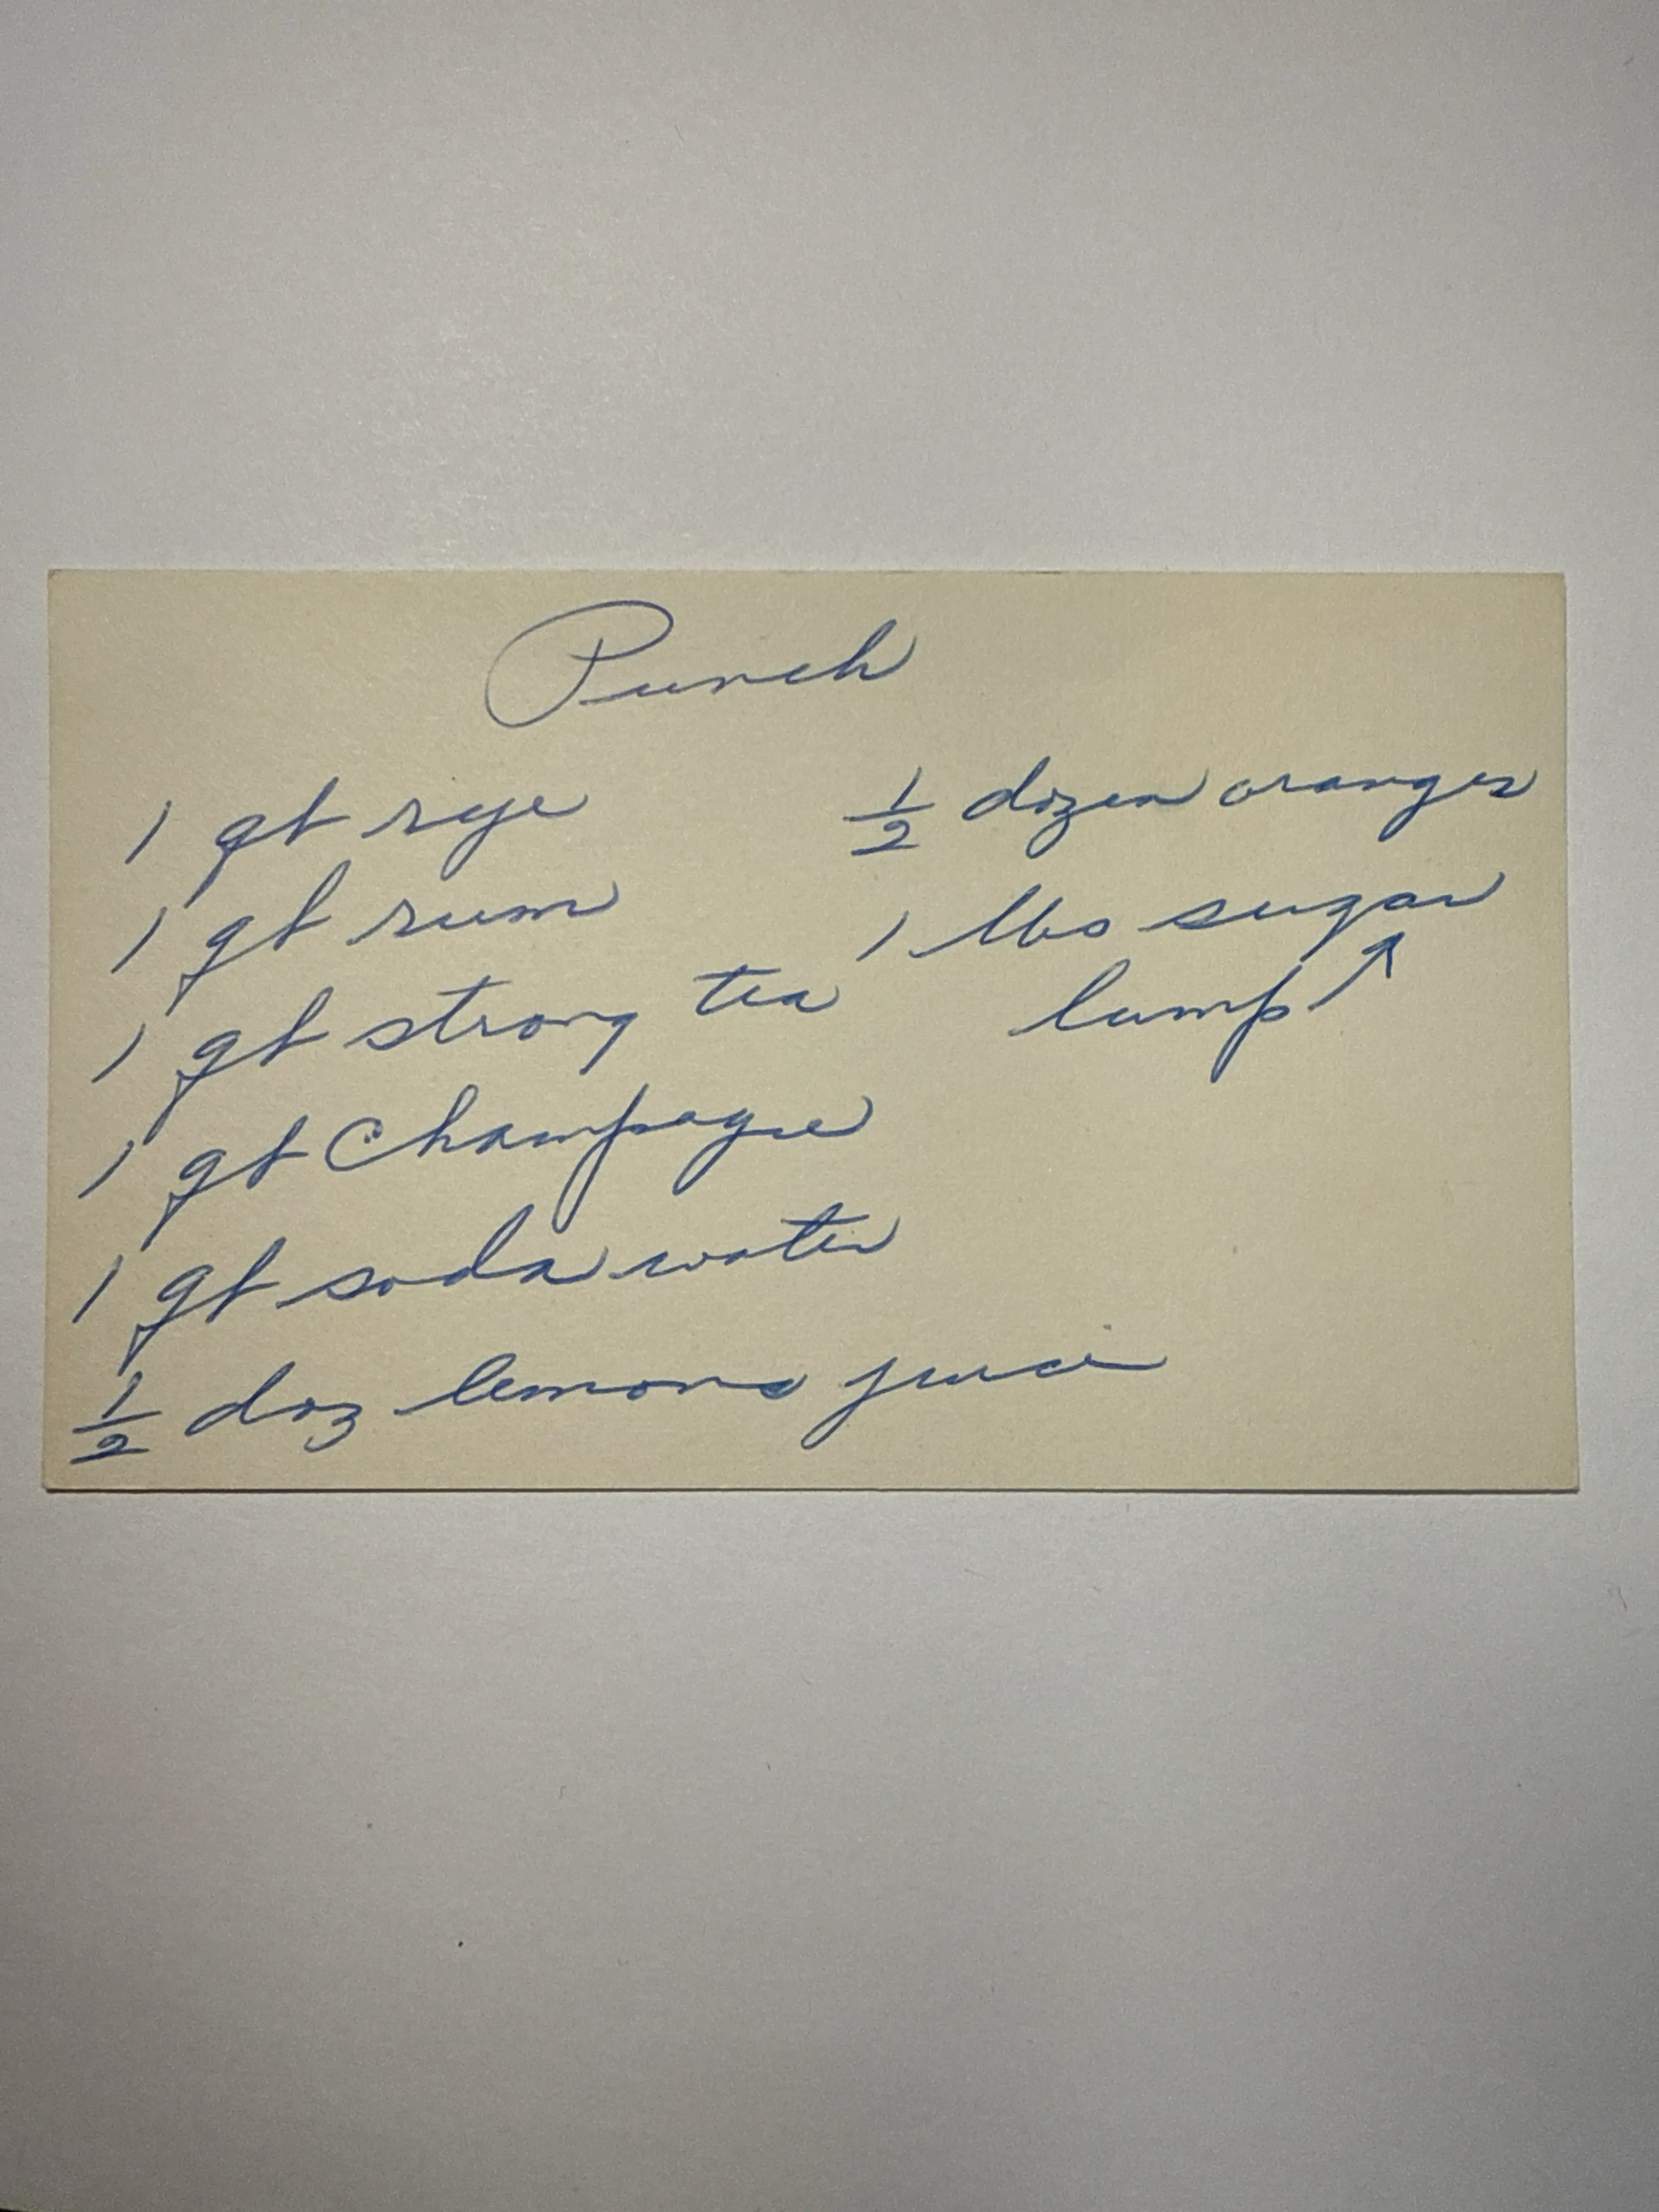 Punch
1 qt rye
1 qt rum
1 qt strong tea
1 qt Champagne
1 qt soda water
1/2 doz lemons juice
1/2 dozen oranges
1 lbs sugar
lump ↗